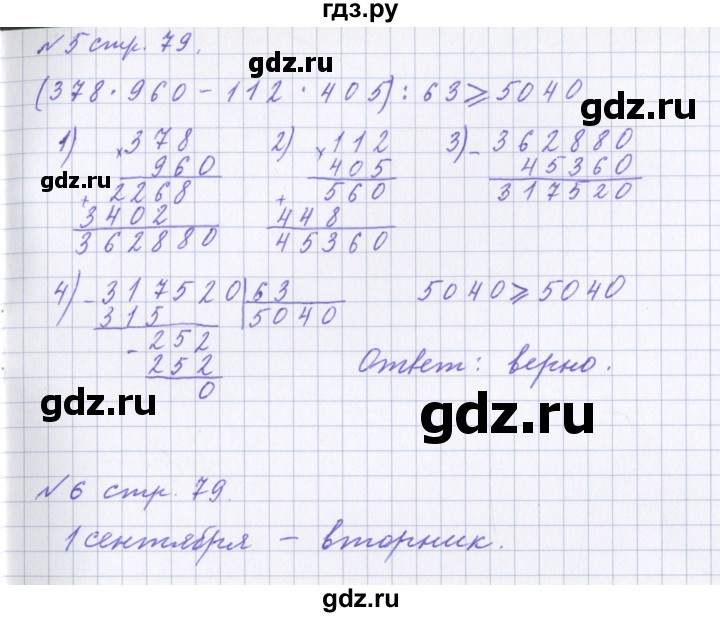 гдз.ру
№5 стр. 79.
gdz.ru
(378·960-112·405):63⩾5040
gdz.ru
1) ×378 2) ×112 3) -362880
960 405 45360
gdz.ru
+2268 +560 317520
gdz.ru
3402 448
362880 45360
4) -317520 63 5040⩾5040
315 5040
-252
252 Ответ: верно.
0
gdz.ru
gdz.ru
№6 стр. 79.
1 сентября - вторник.
gdz.ru